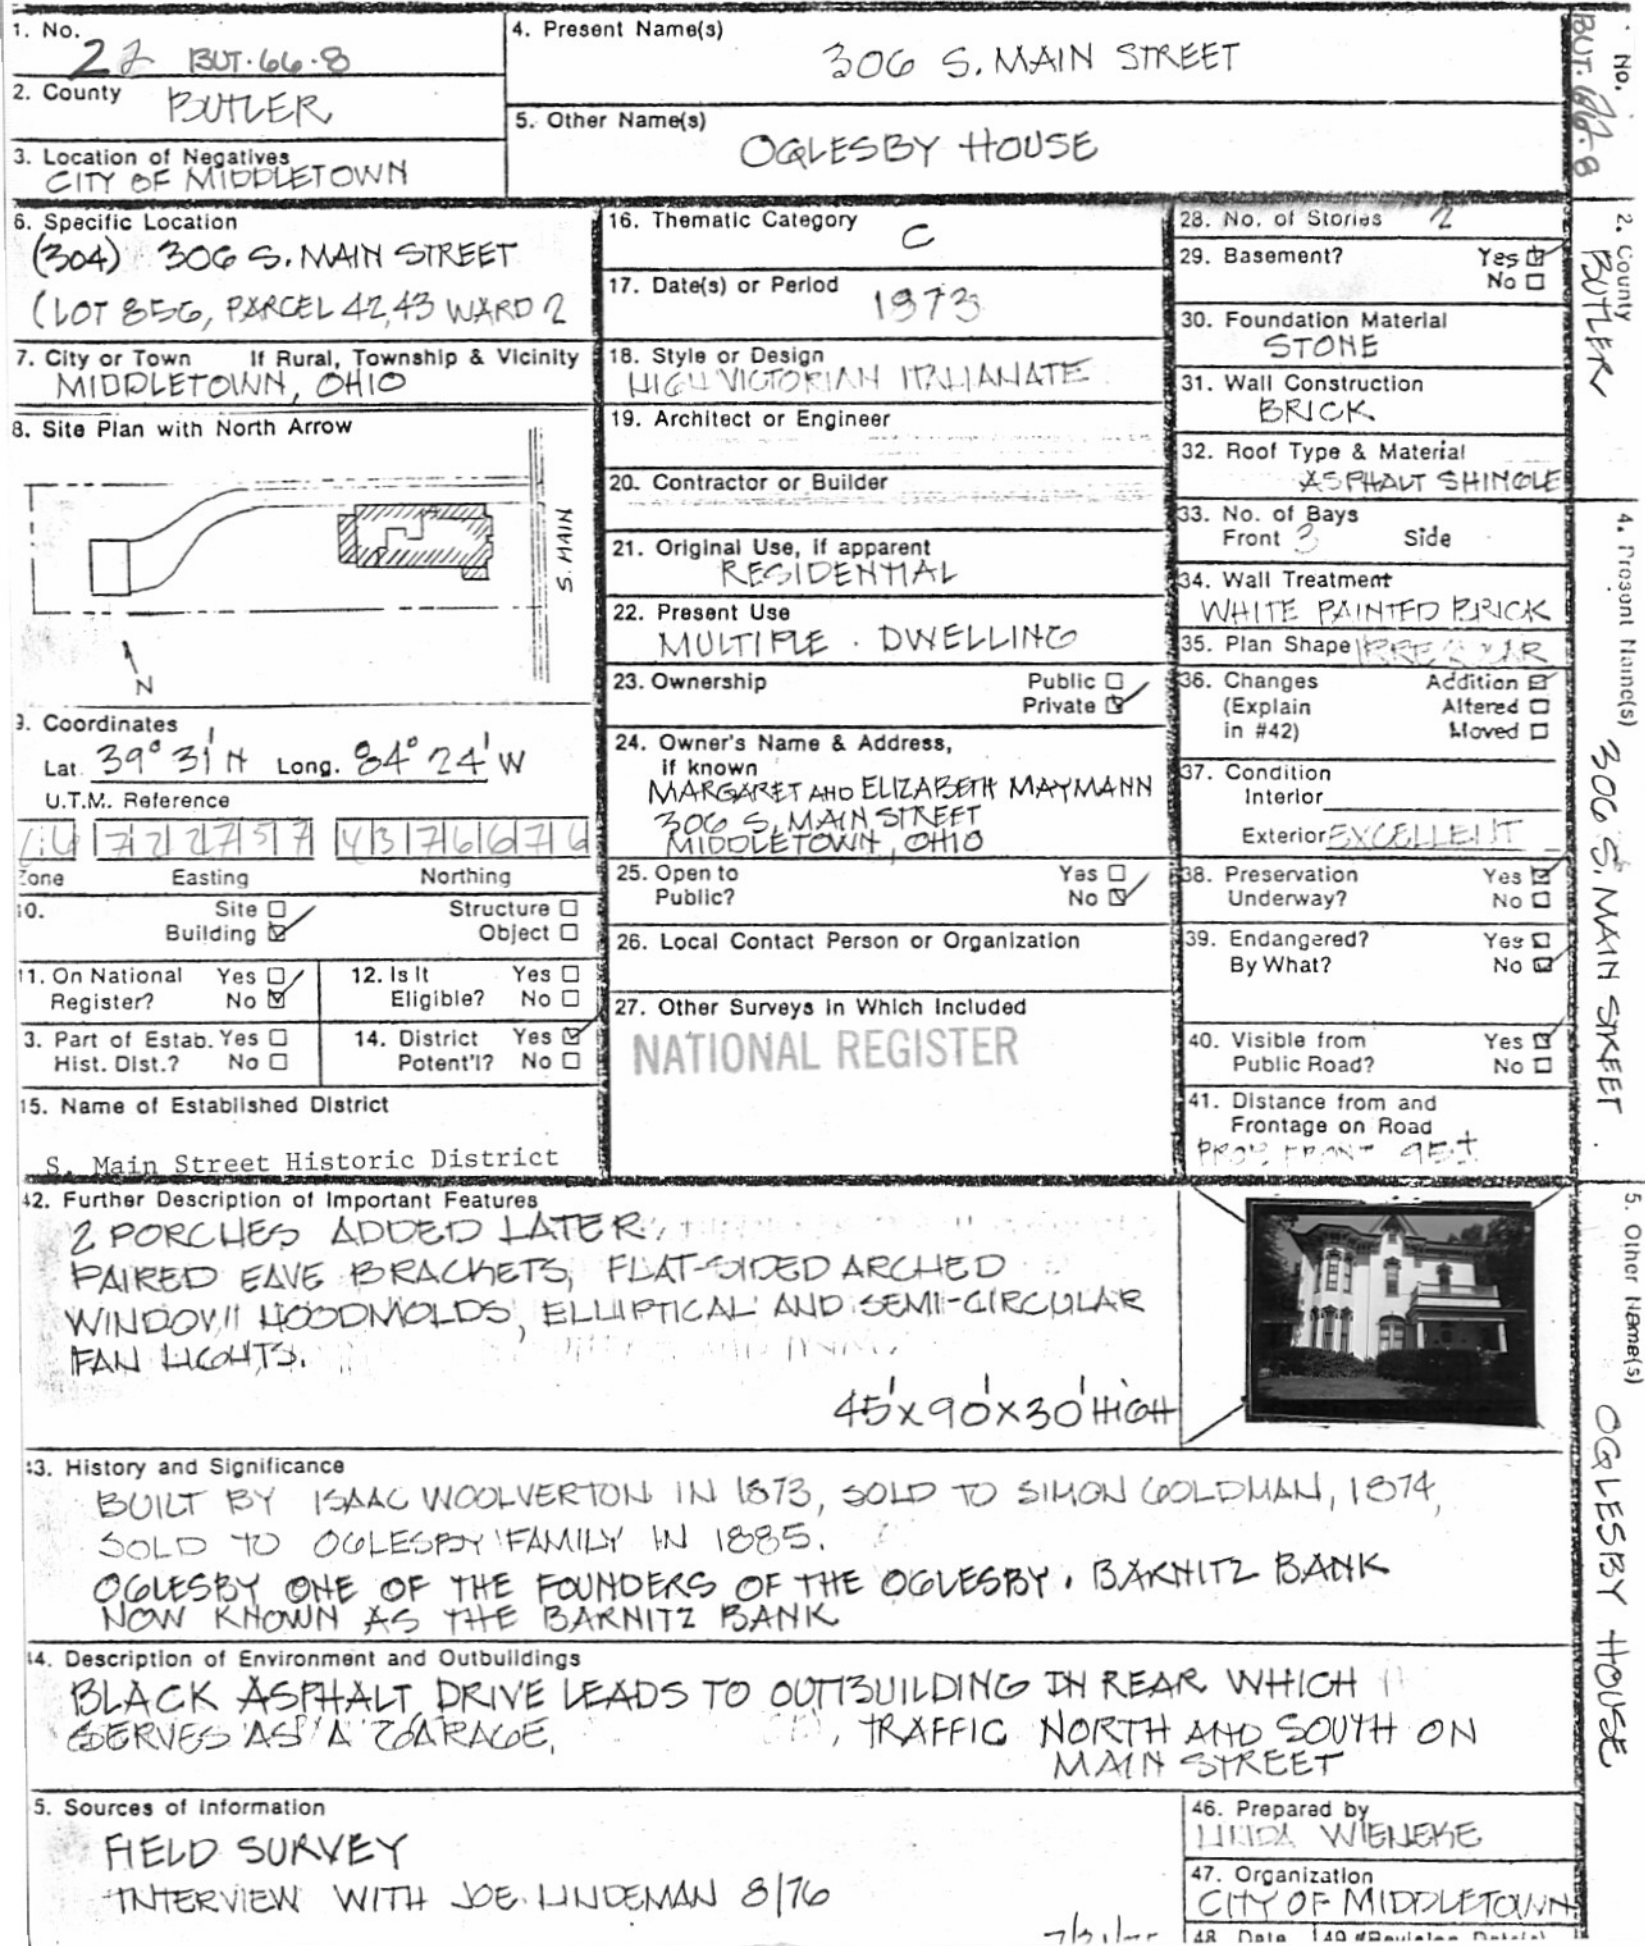 1. No.
22 BUT-66-8
2. County BUTLER
3. Location of Negatives
CITY OF MIDDLETOWN
4. Present Name(s)
306 S. MAIN STREET
5. Other Name(s)
OGLESBY HOUSE
6. Specific Location
(304) 306 S. MAIN STREET
(LOT 856, PARCEL 42,43 WARD 2
7. City or Town If Rural, Township & Vicinity
MIDDLETOWN, OHIO
8. Site Plan with North Arrow
S. MAIN
N
9. Coordinates
Lat. 39° 31' N Long. 84° 24' W
U.T.M. Reference
Zone Easting Northing
10. Site Structure
Building Object
11. On National Yes
Register? No
12. Is It Yes
Eligible? No
3. Part of Estab. Yes
Hist. Dist.? No
14. District Yes
Potent'l? No
15. Name of Established District
S. Main Street Historic District
16. Thematic Category C
17. Date(s) or Period 1873
18. Style or Design
HIGH VICTORIAN ITALIANATE
19. Architect or Engineer
20. Contractor or Builder
21. Original Use, if apparent
RESIDENTIAL
22. Present Use
MULTIPLE DWELLING
23. Ownership Public
Private
24. Owner's Name & Address,
if known
MARGARET AND ELIZABETH MAYMANN
306 S. MAIN STREET
MIDDLETOWN, OHIO
25. Open to Yes
Public? No
26. Local Contact Person or Organization
27. Other Surveys in Which Included
NATIONAL REGISTER
28. No. of Stories 2
29. Basement? Yes
No
30. Foundation Material
STONE
31. Wall Construction
BRICK
32. Roof Type & Material
ASPHALT SHINGLE
33. No. of Bays
Front 3 Side
34. Wall Treatment
WHITE PAINTED BRICK
35. Plan Shape IRREGULAR
36. Changes Addition
(Explain Altered
in #42) Moved
37. Condition
Interior
Exterior EXCELLENT
38. Preservation Yes
Underway? No
39. Endangered? Yes
By What? No
40. Visible from Yes
Public Road? No
41. Distance from and
Frontage on Road
PROP FRONT 95±
42. Further Description of Important Features
2 PORCHES ADDED LATER,
PAIRED EAVE BRACKETS, FLAT-SIDED ARCHED
WINDOW HOODMOLDS, ELLIPTICAL AND SEMI-CIRCULAR
FAN LIGHTS.
45'x90'x30' HIGH
43. History and Significance
BUILT BY ISAAC WOOLVERTON IN 1873, SOLD TO SIMON GOLDMAN, 1874,
SOLD TO OGLESBY FAMILY IN 1885.
OGLESBY ONE OF THE FOUNDERS OF THE OGLESBY. BARNITZ BANK
NOW KNOWN AS THE BARNITZ BANK
44. Description of Environment and Outbuildings
BLACK ASPHALT DRIVE LEADS TO OUTBUILDING IN REAR WHICH
SERVES AS A GARAGE, TRAFFIC NORTH AND SOUTH ON
MAIN STREET
5. Sources of Information
FIELD SURVEY
INTERVIEW WITH JOE LINDEMAN 8/76
46. Prepared by
LINDA WIENEKE
47. Organization
CITY OF MIDDLETOWN
48. Date 49. Revision Date(s)
No.
BUT-66-8
2. County
BUTLER
4. Present Name(s)
306 S. MAIN STREET
5. Other Name(s)
OGLESBY HOUSE